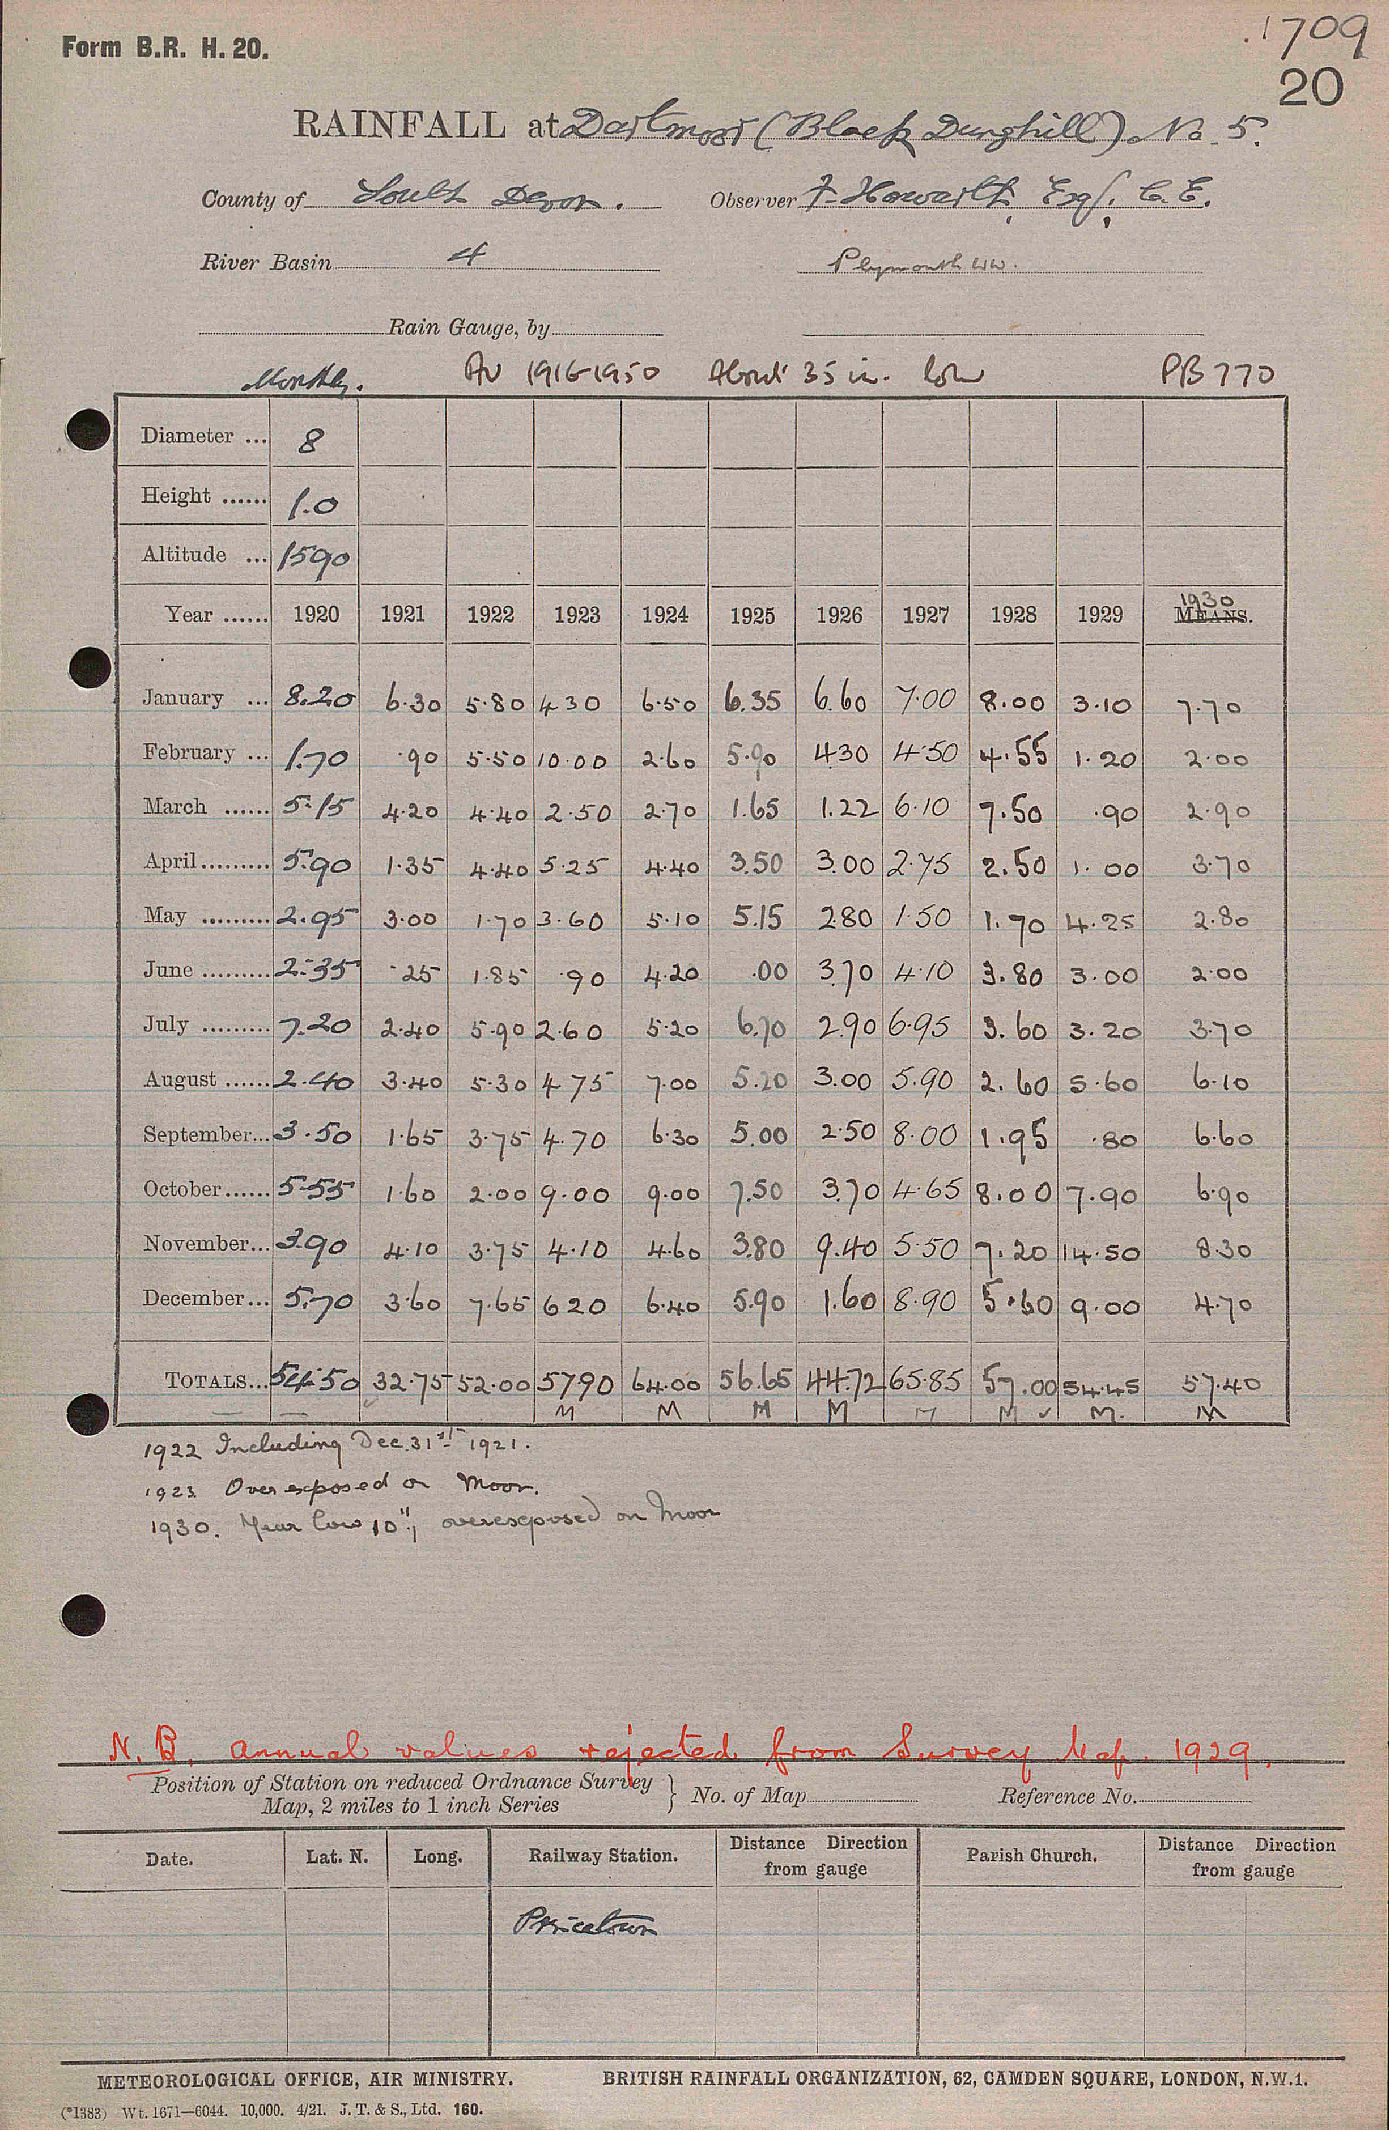 Form B.R. H. 20.
1709
20
RAINFALL at Dartmoor (Black Dunghill) No. 5.
County of South Devon. Observer F. Howarth, Esq., C.E.
River Basin 4 Plymouth WW.
Rain Gauge, by
Monthly. Av 1916-1950 About 35 in. low PB 770
Diameter ... 8
Height ...... 1.0
Altitude ... 1590
Year ...... 1920 1921 1922 1923 1924 1925 1926 1927 1928 1929 1930 MEANS.
January ... 8.20 6.30 5.80 4 30 6.50 6.35 6.60 7.00 8.00 3.10 7.70
February ... 1.70 .90 5.50 10.00 2.60 5.90 4.30 4.50 4.55 1.20 2.00
March ...... 5.15 4.20 4.40 2.50 2.70 1.65 1.22 6.10 7.50 .90 2.90
April ......... 5.90 1.35 4.40 5.25 4.40 3.50 3.00 2.75 2.50 1.00 3.70
May ......... 2.95 3.00 1.70 3.60 5.10 5.15 2.80 1.50 1.70 4.25 2.80
June ......... 2.35 .25 1.85 .90 4.20 .00 3.70 4.10 3.80 3.00 2.00
July ......... 7.20 2.40 5.90 2.60 5.20 6.70 2.90 6.95 3.60 3.20 3.70
August ...... 2.40 3.40 5.30 4 75 7.00 5.20 3.00 5.90 2.60 5.60 6.10
September ... 3.50 1.65 3.75 4.70 6.30 5.00 2.50 8.00 1.95 .80 6.60
October ...... 5.55 1.60 2.00 9.00 9.00 7.50 3.70 4.65 8.00 7.90 6.90
November ... 3.90 4.10 3.75 4.10 4.60 3.80 9.40 5.50 7.20 14.50 8.30
December ... 5.70 3.60 7.65 6 20 6.40 5.90 1.60 8.90 5.60 9.00 4.70
TOTALS ... 54.50 32.75 52.00 57.90 64.00 56.65 44.72 65.85 57.00 54.45 57.40
M M M M M M M. M
1922 Including Dec. 31st 1921.
1923 Over exposed on Moor.
1930. Mean low 10", overexposed on Moor
N.B. Annual values rejected from Survey Map 1929.
Position of Station on reduced Ordnance Survey Map, 2 miles to 1 inch Series } No. of Map Reference No.
Date. Lat. N. Long. Railway Station. Distance Direction from gauge Parish Church. Distance Direction from gauge
Princetown
METEOROLOGICAL OFFICE, AIR MINISTRY. BRITISH RAINFALL ORGANIZATION, 62, CAMDEN SQUARE, LONDON, N.W.1.
(*1383) Wt. 1671—6044. 10,000. 4/21. J. T. & S., Ltd. 160.